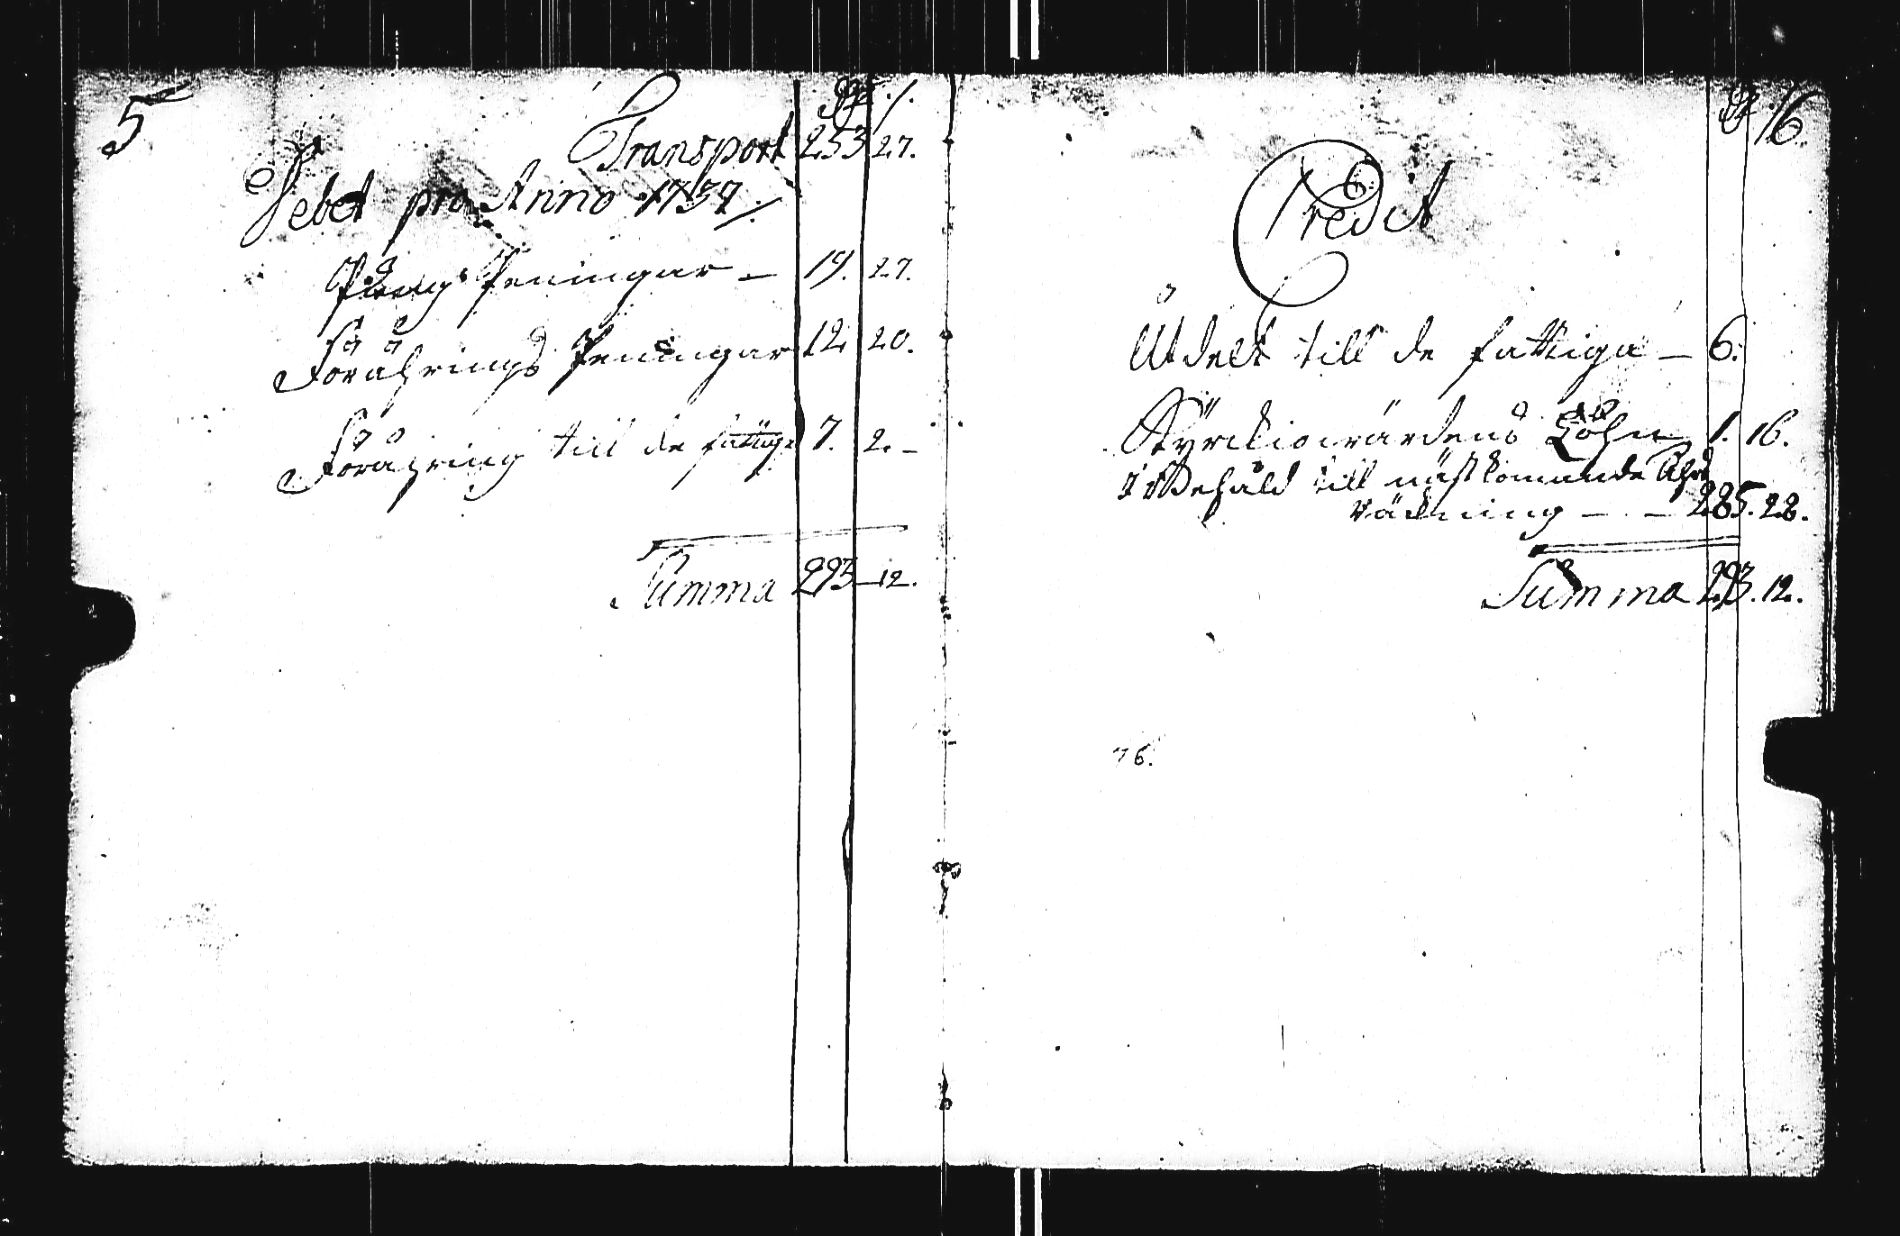 5
Transport 253 27.
Debet pro Anno 1737 ./.
Pung Peningar — 19. 27.
Förährings Peningar 12 20.
Förähring till de fattige 7. 2. –
Summa 293 – 12.
6.
Credit
Utdelt till de fattiga — 6:
Kyrckiowärdens Löhn 1. 16.
Behåld till nästkomande Åhrs
Räckning — — 285. 28.
Summa 293. 12.
76.